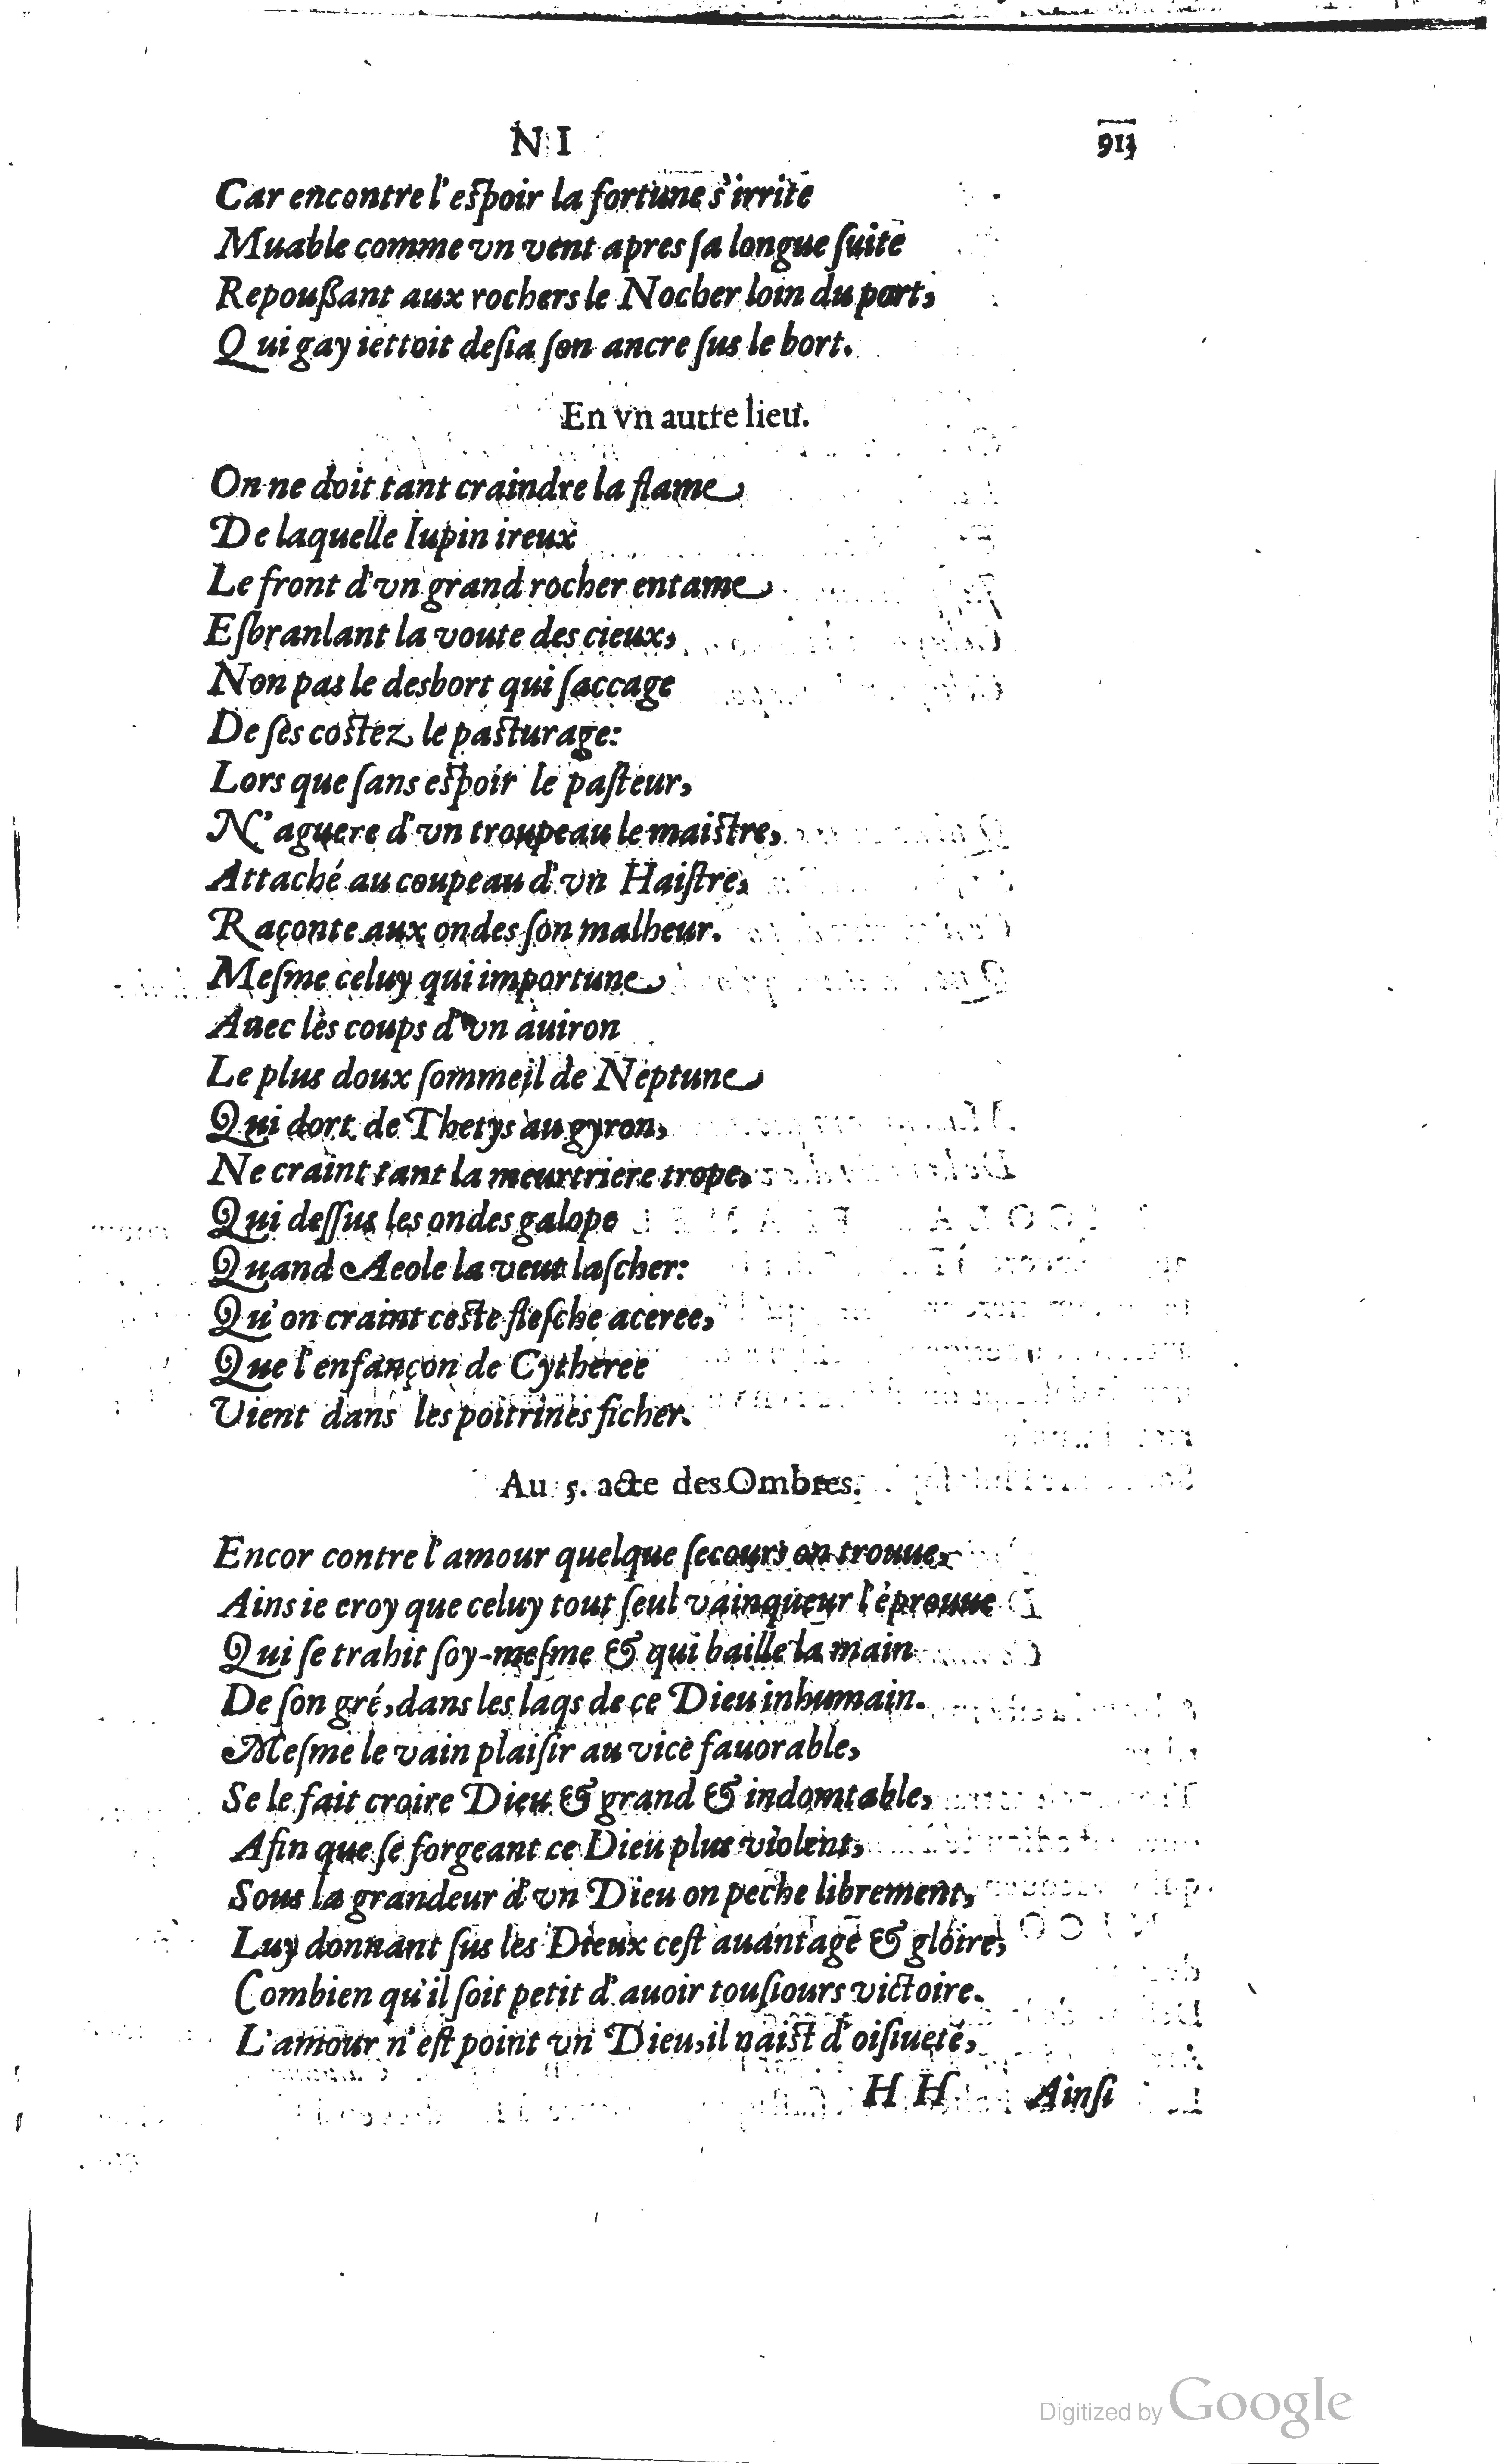 NI
Car encontre l'eſpoir la fortune s'irrite
Muable comme vn vent apres ſa longue ſuite
Repoußant aux rochers le Nocher loin du port,
Qui gay iettoit deſia ſon ancre ſus le bort.
En vn autre lieu.
On ne doit tant craindre la flame
De laquelle Iupin ireux
Le front d'vn grand rocher entame
Eſbranlant la voute des cieux,
Non pas le desbort qui ſaccage
De ſes coſtez le paſturage:
Lors que ſans eſpoir le paſteur,
N'aguere d'vn troupeau le maiſtre,
Attaché au coupeau d'vn Haiſtre,
Raconte aux ondes ſon malheur.
Meſme celuy qui importune
Auec les coups d'vn auiron
Le plus doux ſommeil de Neptune
Qui dort de Thetys au gyron,
Ne craint tant la meurtriere trope,
Qui deſſus les ondes galope
Quand Aeole la veut laſcher:
Qu'on craint ceſte fleſche aceree,
Que l'enfançon de Cytheree
Vient dans les poitrines ficher.
Au 5. acte des Ombres.
Encor contre l'amour quelque ſecours on trouue,
Ains ie croy que celuy tout ſeul vainqueur l'éprouue
Qui ſe trahit ſoy-meſme & qui baille la main
De ſon gré, dans les laqs de ce Dieu inhumain.
Meſme le vain plaiſir au vice fauorable,
Se le fait croire Dieu & grand & indomtable,
Afin que ſe forgeant ce Dieu plus violent,
Sous la grandeur d'vn Dieu on peche librement,
Luy donnant ſus les Dieux ceſt auantage & gloire,
Combien qu'il ſoit petit d'auoir touſiours victoire.
L'amour n'eſt point vn Dieu, il naiſt d'oiſiueté,
HH Ainſi
Digitized by Google